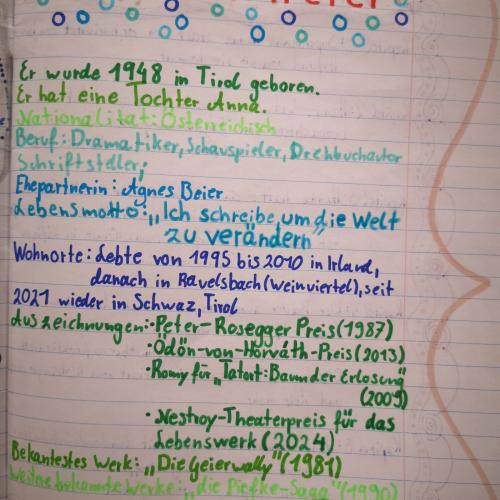 Er wurde 1948 in Tirol geboren.
Er hat eine Tochter Anna.
Nationalität: Österreichisch
Beruf: Dramatiker, Schauspieler, Drehbuchautor
Schriftsteller;
Ehepartnerin: Agnes Beier
Lebensmotto: „Ich schreibe, um die Welt
zu verändern"
Wohnorte: Lebte von 1995 bis 2010 in Irland,
danach in Ravelsbach (Weinviertel), seit
2021 wieder in Schwaz, Tirol
Auszeichnungen: • Peter-Rosegger Preis (1987)
• Ödön-von-Horváth-Preis (2013)
• Romy für „Tatort: Baum der Erlösung"
(2009)
• Nestroy-Theaterpreis für das
Lebenswerk (2024)
Bekantestes Werk: „Die Geierwally" (1981)
bekannte Werke: „die Piefke-Saga" (1990)